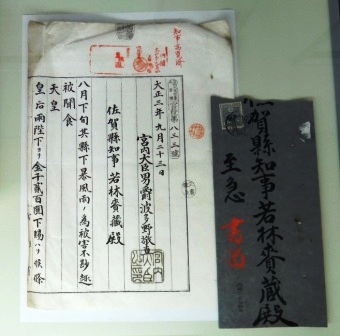 知事高覧済
第八三三號
大正三年九月二十三日
宮内大臣男爵波多野敬直
佐賀縣知事若林賚藏殿
八月下旬其縣下暴風雨ノ為被害不尠趣
被聞食
天皇
皇后兩陛下ヨリ金千貳百圓下賜ハリ候條
佐賀縣知事若林賚藏殿
至急
書留